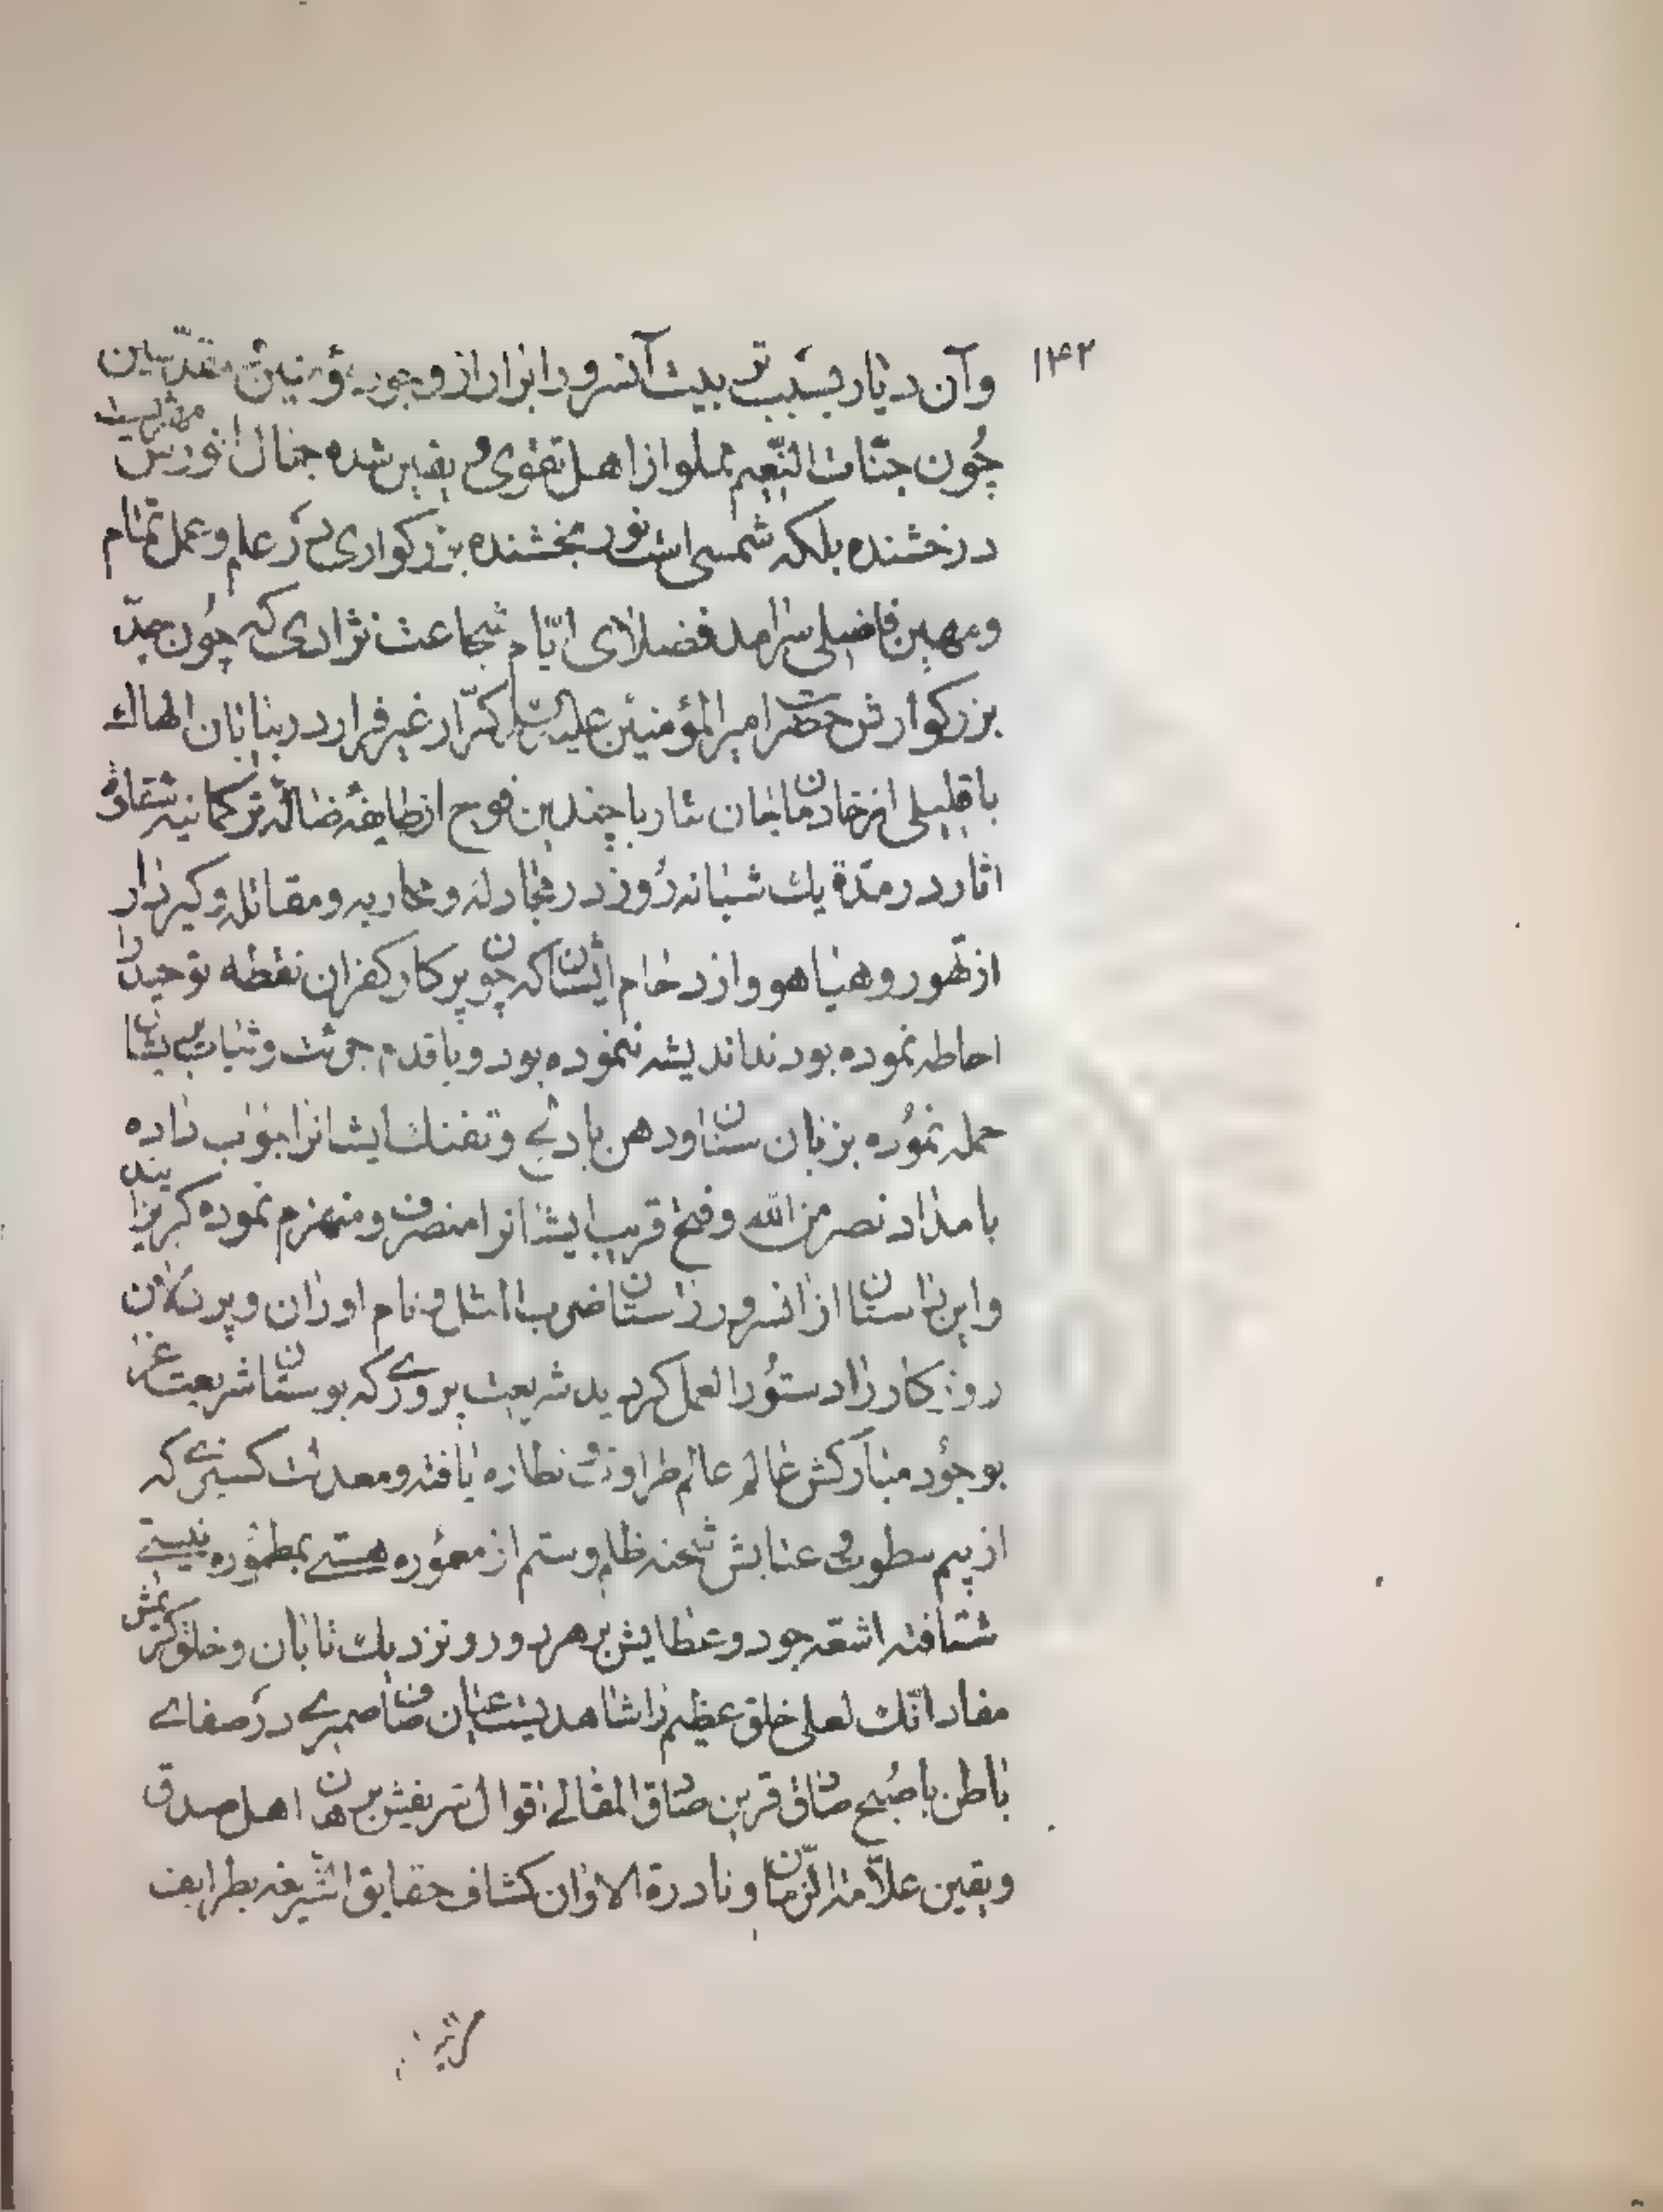 ۱۴۲
وآن دیار بسبب تربیت آنسرور ابرار از وجود مؤمنین مقدّسین
چُون جنّات النّعیم مملو از اهل تقوی و یقین شده جمال انورش مهریست
درخشنده بلکه شمسی است نور بخشنده بزرکواری در علم وعمل تمام
ومهین فاضلی سرامد فضلای ایّام شجاعت نژادی که چون جدّ
بزرکوارش حضرت امیرالمؤمنین علیه السلام کرّار غیر فرار در بیابان الهاک
با قلیلی از خادمان جان نثار با چندین فوج از طایفهٔ ضالّهٔ ترکمانیه شقاوة
اثار در مدّة یک شبانه رُوز در مجادله و محاربه و مقاتله وکیر و دار
از تهور و هیاهو و از دحام ایشان که چون پرکار کفران نقطه توحید را
احاطه نموده بودند اندیشه ننموده بود و با قدم جرئت و ثبات بر ایشان
حمله نموُده بزبان سنان و دهن بادلج و تفنک ایشانرا جواب داده
با مداد نصر من الله و فتح قریب ایشانرا منصرف و منهزم نموده کریزانید
و این داستان از انسرور راستان ضرب المثل و نام اوران و پردلان
روزکار را دستوُر العمل کردید شریعت پروری که بوستان شریعت غرّا
بوجُود مبارکش عالم عالم طراوت و نظاره یافته و معدلت کستری که
از بیم سطوت و عتابش شحنه ظلم و ستم از معموُره هستی بمطموُره نیستی
شتافته اشعّه جود و عطایش بر هر دور و نزدیک تابان و خلق کریمش
مفاد انّک لعلی خلق عظیم را شاهدیست عیان صاف ضمیری در صفای
باطن با صُبح صادق قرین صادق المقالی اقوال شریفش برهان اهل صدق
و یقین علاّمة الزّمان و نادرة الاوان کشاف حقایق الشّریفه بطرایف